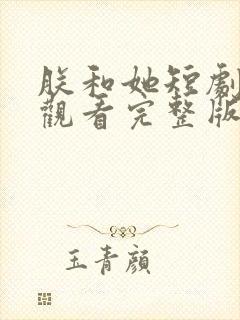 朕和她短劇
觀看完整版
玉青顏